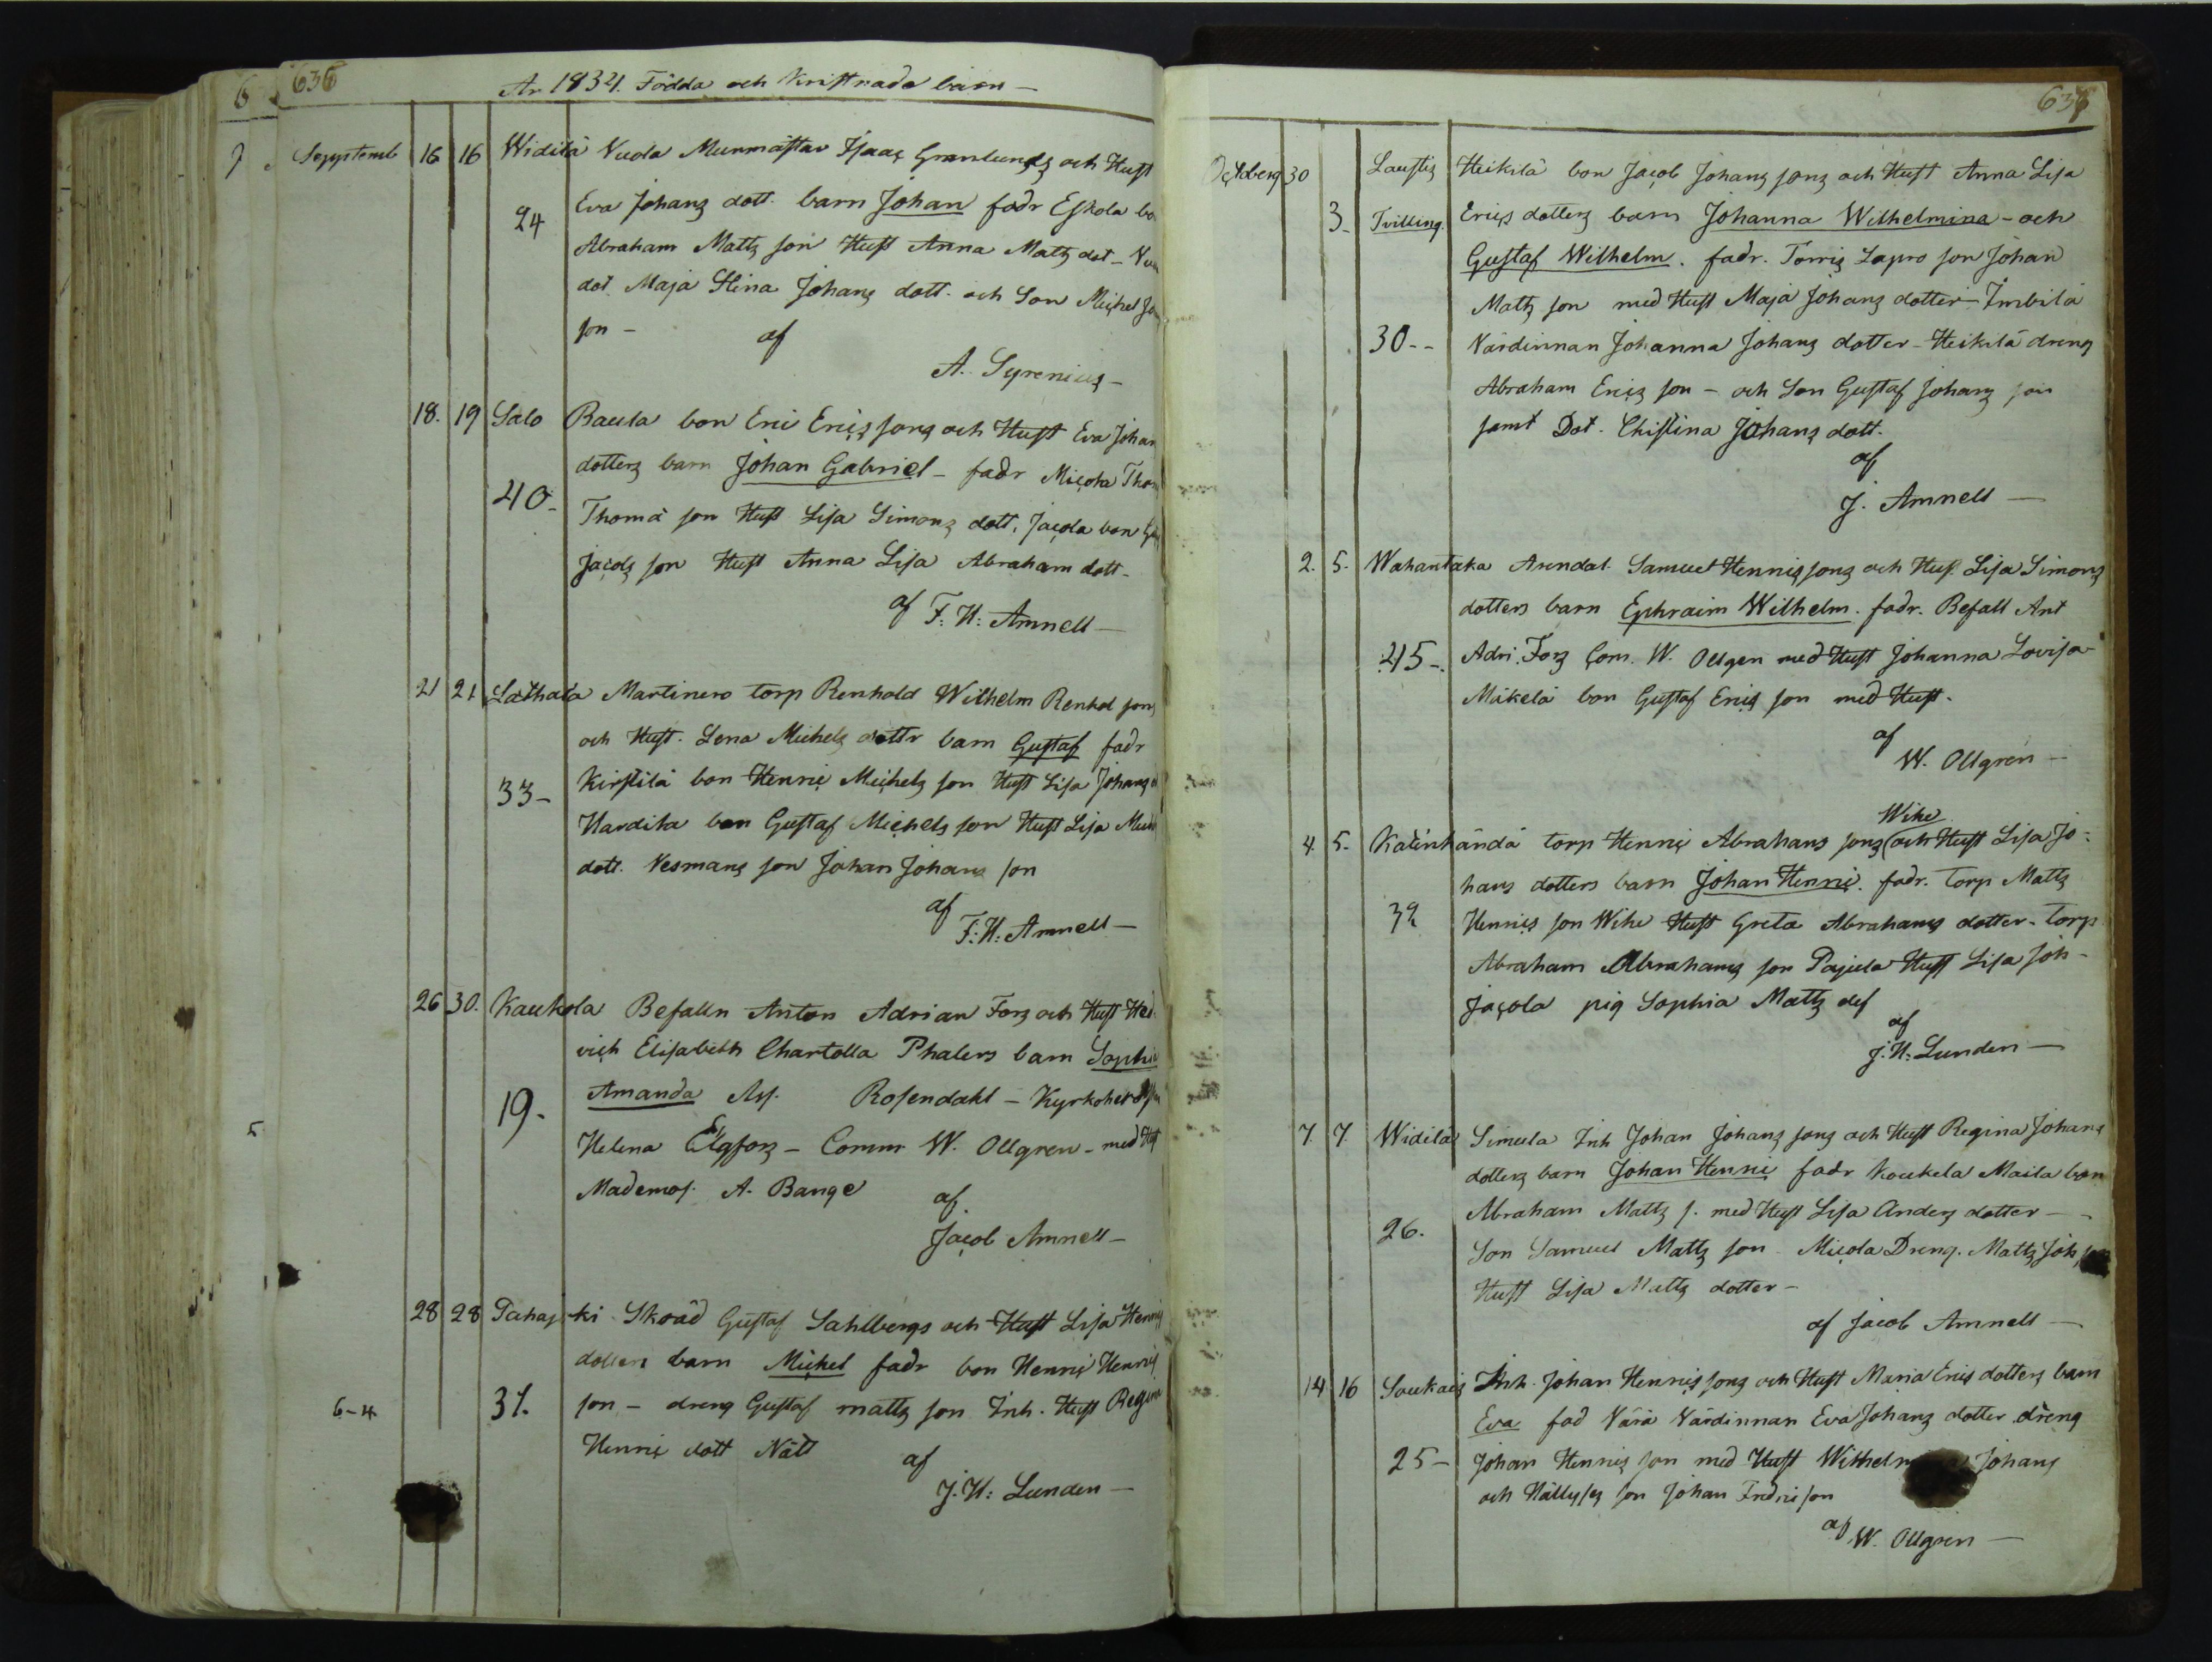 636
Ar 1834. Födda och Kristnade barn –
Sepptemb 16 16 Widilä Nuola Murmästar Isaac Granlunds och Hust
Eva Johans dott. barn Johan fadr Eskola bo
24
Abraham Matts son Hust Anna Matts dot –
dot Maja Stina Johans dott. och Son Michel Jo
son – af
A. Syrenius –
18. 19 Salo Baula bon Eric Erics sons och Hust Eva Johan
dotters barn Johan Gabriel – fadr Micola Thom
40 –
Thoma son Hust Lisa Simons dott. Jacola bon
Jacobs son Hust Anna Lisa Abraham dott –
af F: H: Amnell –
21 21 Lathala Martinero torp Renhold Wilhelm Renhol sons
och Hust. Lena Michels dottr barn Gustaf fadr
33 –
Kirstilä bon Henric Michels son Hust Lisa Johans
Hardila bon Gustaf Michels son Hust Lisa
dott. Nesmans son Johan Johans son
af
F: H: Amnell –
26 30. Kaukola Befalln Anton Adrian Fors och Hust Hed
vich Elisabeth Chartolla Phalers barn Sophia
19.
Amanda Ass. Rosendahl – Kyrkoher
Helena Elgfors – Comm W. Ollgren – med Hust
Mademos. A. Bange af
Jacob Amnell –
28 28 Pahajoki Skräd Gustaf Sahlbergs och Hust Lisa Henris
dotters barn Michel fadr bon Henric Henrics
6–4 31. son – dreng Gustaf matts son Inh. Hust Regina
Henric dott Nätt af
J. H: Lunden –
637
Octoberg 30 Laustis Heikilä bon Jacob Johans sons och Hust Anna Lisa
3 – Tvilling. Erics dotters barn Johanna Wilhelmina – och
Gustaf Wilhelm. fadr. Torris Lapro son Johan
Matts son med Hust Maja Johans dotter – Imbilä
30 – – Värdinnan Johanna Johans dotter – Heikilä dreng
Abraham Erics son – och Son Gustaf Johans son
samt Dot. Christina Johans dott.
af
J. Amnell –
2. 5. Wahantaka Arendat. Samuel Henrics sons och Hus. Lisa Simons
dotters barn Ephraim Wilhelm. fadr. Befall Ant
45 –. Adri. Fors Com. W. Ollgen med Hust Johanna Lovisa –
Mäkelä bon Gustaf Erics son med Hust.
af
W. Ollgren –
Wike
4 5. Katinhändä torp Henric Abrahans sons och Hust Lisa Jo-
hans dotters barn Johan Henric. fadr. Torp Matts
32 Henrics son Wike Hust Greta Abrahams dotter – Torp
Abraham Abrahams son Pajula Hust Lisa Joh –
Jacola pig Sophia Matts dot
af
J. H: Lunden –
7. 7. Widilä Simula Inh Johan Johans sons och Hust Regina Johans
dotters barn Johan Henric fadr Koukela Maila bon
Abraham Matts s. med Hust Lisa Anders dotter –
26.
Son Samuel Matts son – Micola Dreng. Matts Joh
Hust Lisa Matts dotter –
af Jacob Amnell –
14 16 Soukais Inh. Johan Henrics sons och Hust Maria Erics dotters barn
Eva fad Närä Värdinnan Eva Johans dotter dreng
25 – Johan Henrics son med Hust Wilhelm Johans
och Hällyses son Johan Fredric son
af W. Ollgren –